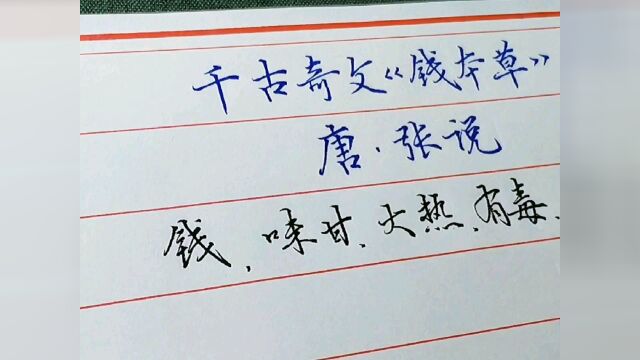 千古奇文《钱本草》
唐·张说
钱、味甘、大热、有毒、